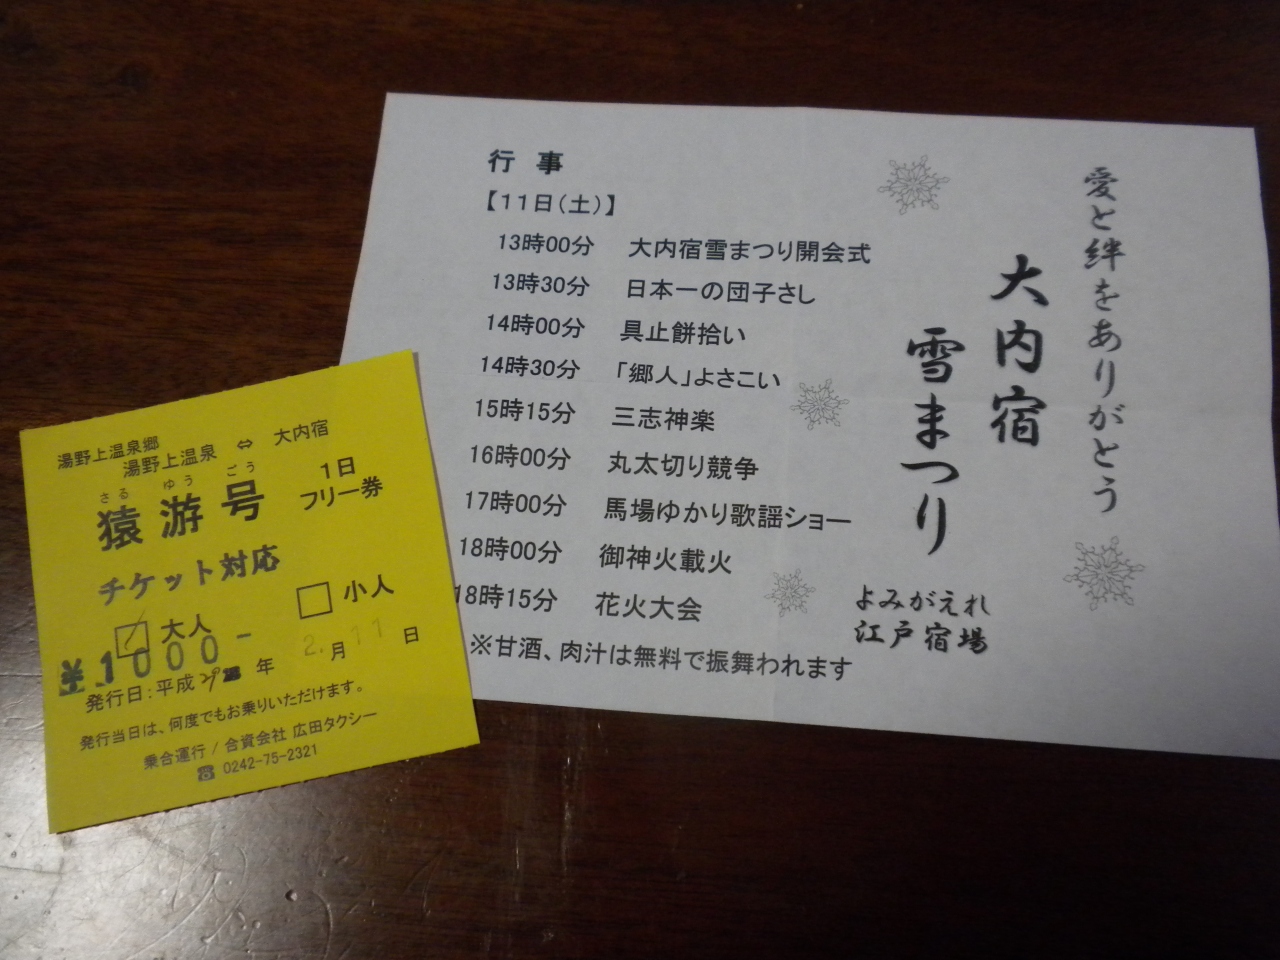 湯野上温泉郷
湯野上温泉 ⇔ 大内宿
さる ゆう ごう
猿游号
1日
フリー券
チケット対応
大人
小人
¥1000-
発行日:平成29年 2.月11日
発行当日は、何度でもお乗りいただけます。
乗合運行/合資会社 広田タクシー
☎ 0242-75-2321
愛と絆をありがとう
大内宿
雪まつり
よみがえれ
江戸宿場
行 事
【11日(土)】
13時00分 大内宿雪まつり開会式
13時30分 日本一の団子さし
14時00分 具止餅拾い
14時30分 「郷人」よさこい
15時15分 三志神楽
16時00分 丸太切り競争
17時00分 馬場ゆかり歌謡ショー
18時00分 御神火載火
18時15分 花火大会
※甘酒、肉汁は無料で振舞われます